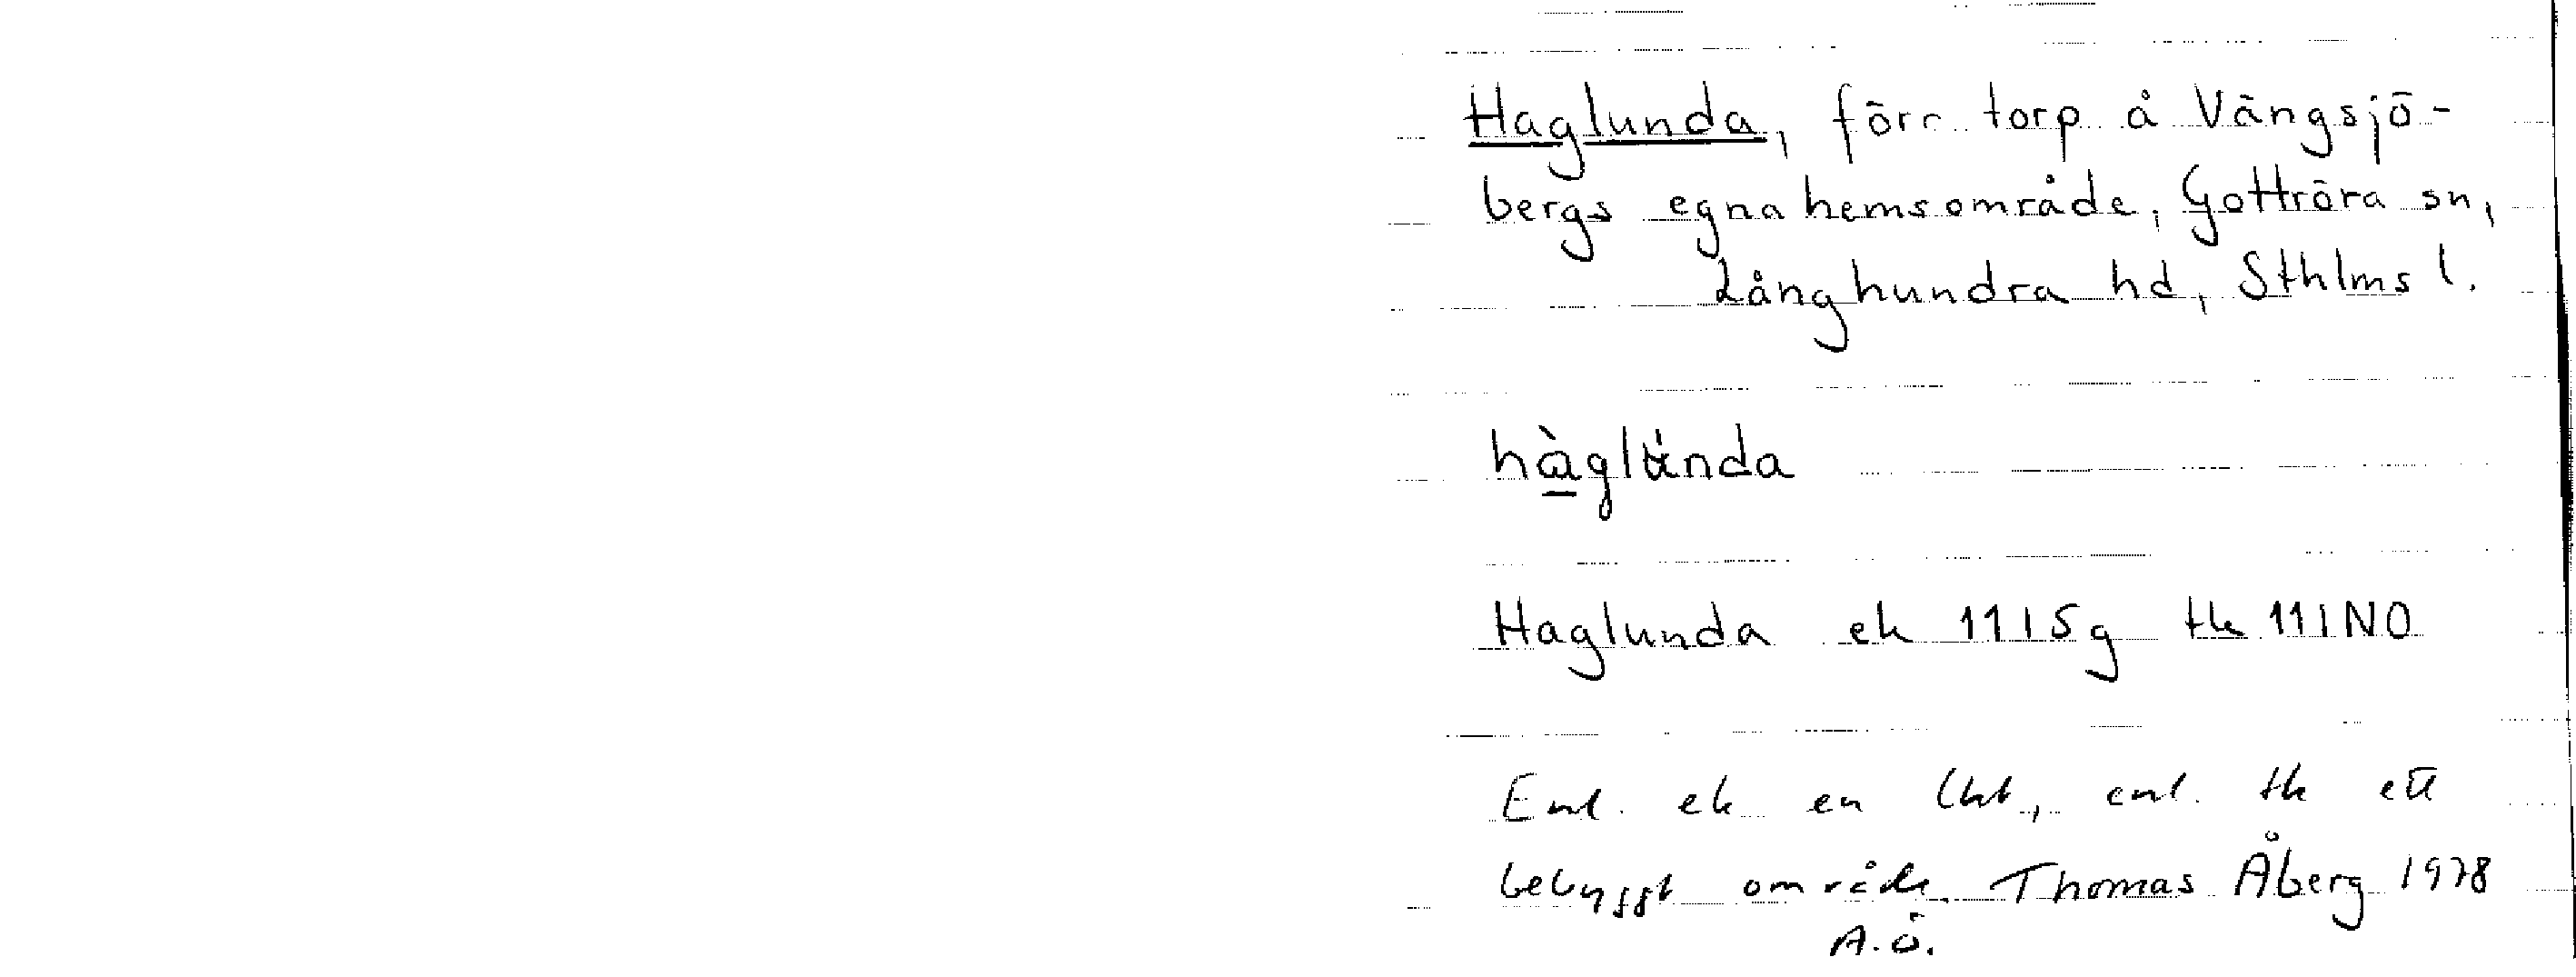 Haglunda, förr torp å Vängsjö-
bergs egnahemsområde, Gottröra sn,
Långhundra hd, Sthlms l.
hàglúnda
Haglunda ek 11I5g tk 11INO
Enl. ek en lht, enl. tk ett
bebyggt område. Thomas Åberg 1978
A.Ö.